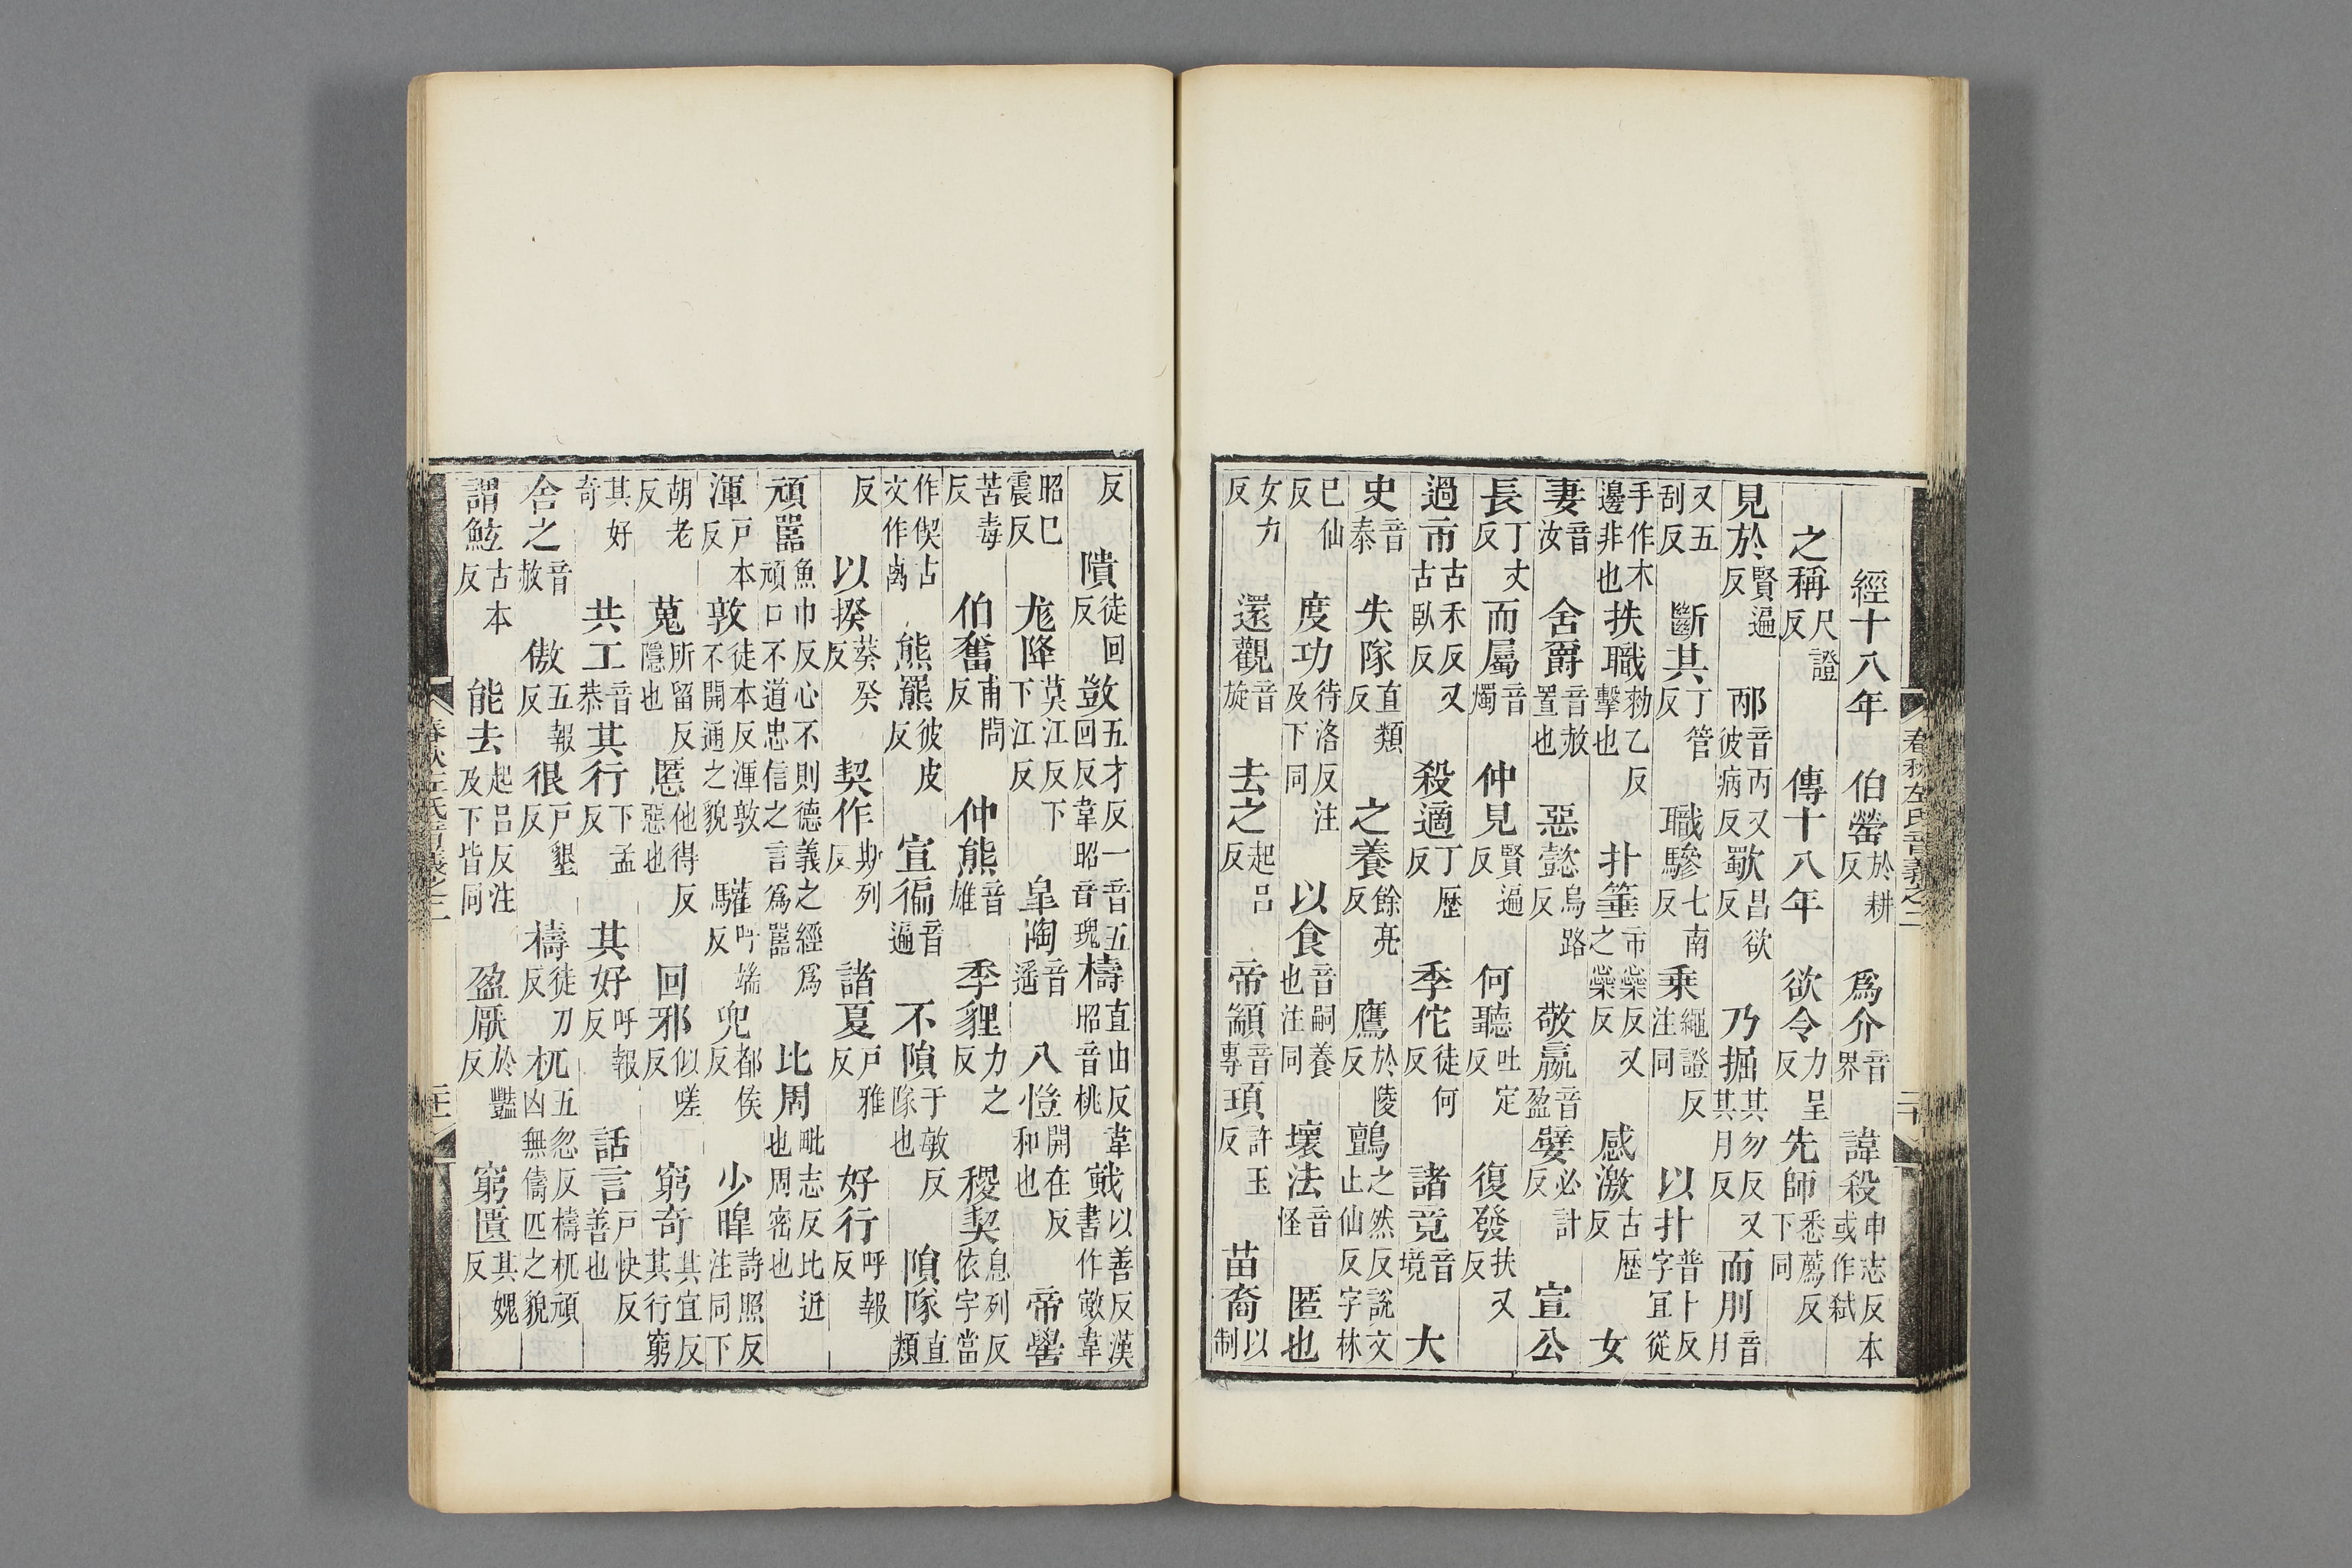 經十八年 伯罃於耕反 爲介音界 諱殺申志反本或作弒
之稱尺證反 傳十八年 欲令力呈反 先師悉薦反下同
見於賢遍反 邴音丙又彼病反 歜昌欲反 乃掘其勿反又其月反 而刖音月
又五刮反 斷其丁管反 職驂七南反 乘繩證反注同 以扑普卜反字宜從
手作木邊非也 抶職勑乙反擊也 扑箠市橤反又之橤反 感激古歷反 女
妻音汝 舍爵音赦置也 惡懿烏路反 敬嬴音盈 嬖必計反 宣公
長丁丈反 而屬音燭 仲見賢遍反 何聽吐定反 復發扶又反
過市古禾反又古臥反 殺適丁歷反 季佗徒何反 諸竟音境 大
史音泰 失隊直類反 之養餘亮反 鷹於陵反 鸇之然反說文止仙反字林
巳仙反 度功待洛反注及下同 以食音嗣養也注同 壞法音怪 匿也
女力反 還觀音旋 去之起呂反 帝顓音專 頊許玉反 苗裔以制
春秋左氏音義之二
反 隤徒回反 敳五才反一音五回反韋昭音瑰 檮直由反韋昭音桃 戭以善反漢書作㪉韋
昭巳震反 尨降莫江反下下江反 皐陶音遙 八愷開在反和也 帝嚳
苦毒反 伯奮甫問反 仲熊音雄 季貍力之反 稷契息列反依字當
作偰古文作卨 熊羆彼皮反 宣徧音遍 不隕于敏反隊也 隕隊直類
反 以揆葵癸反 契作斯列反 諸夏戶雅反 好行呼報反
頑嚚魚巾反心不則德義之經爲頑口不道忠信之言爲嚚 比周毗志反比近也周密也
渾戶本反 敦徒本反渾敦不開通之貌 驩呼端反 兜都侯反 少皞詩照反注同下
胡老反 蒐所留反隱也 慝他得反惡也 回邪似嗟反 窮奇其宜反其行窮
其好奇 共工音恭 其行下孟反 其好呼報反 話言戶快反善也
舍之音赦 傲五報反 很戶墾反 檮徒刀反 杌五忽反檮杌頑凶無儔匹之貌
謂鮌古本反 能去起呂反注及下皆同 盈厭於豔反 窮匱其媿反
春秋左氏音義之二